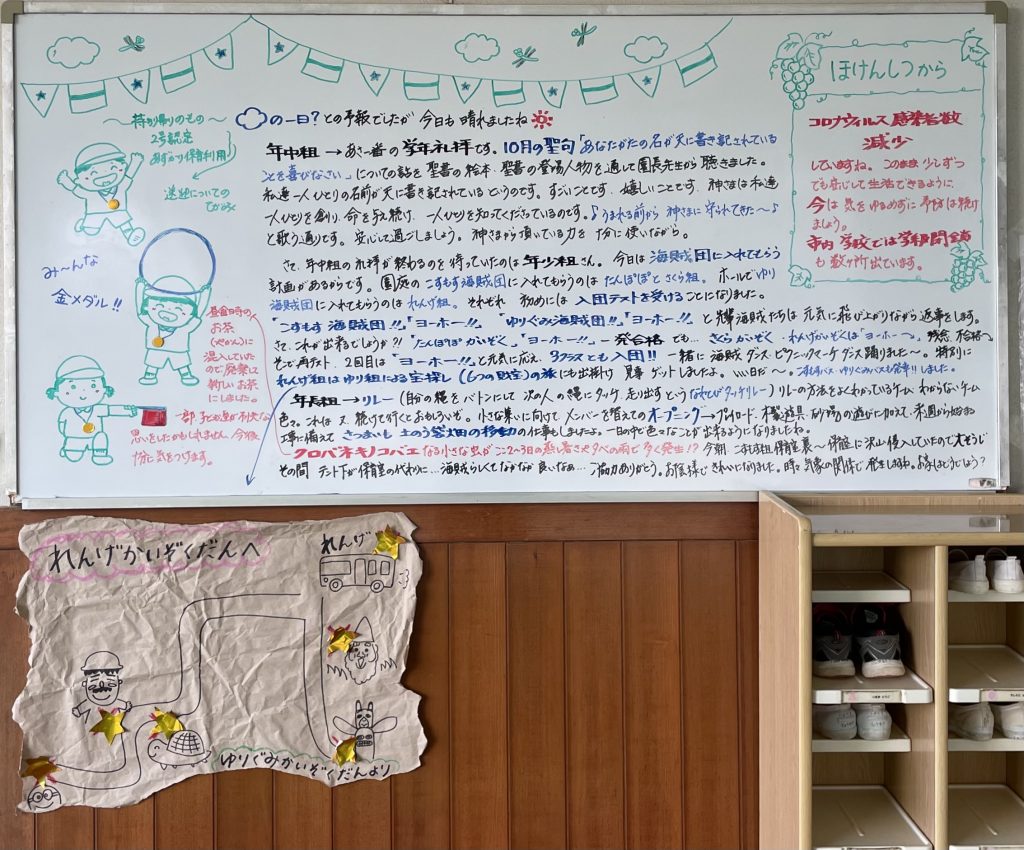 〜持ち帰りのもの〜
2号認定
あずかり保育利用
送迎についての
てがみ
み〜んな
金メダル!!
昼食時の
お茶
(やかん)に
混入していた
ので廃棄し
新しいお茶
にしました。
一部 子ども達が不快な
思いをしたかもしれません 今後
十分に気をつけます。
の一日?との予報でしたが 今日も 晴れましたね
年中組→あさ一番の学年礼拝です。10月の聖句「あなたがたの名が天に書き記されている
ことを喜びなさい」についての話を 聖書の絵本 聖書の登場人物を通して園長先生から 聴きました。
私達一人ひとりの名前が天に書き記されている というのです。すごいことです。嬉しいことです。神さまは私達
一人ひとりを創り、命を与え続け、一人ひとりを知ってくださっているのです。♪うまれる前から 神さまに 守られてきた〜♪
と歌う通りです。安心して過ごしましょう。神さまから頂いている力を 十分に使いながら。
さて、年中組の礼拝が終わるのを待っていたのは 年少組さん。今日は 海賊団に入れてもらう
計画があるからです。園庭の こすもす海賊団に入れてもらうのは たんぽぽと さくら組。ホールで ゆり
海賊団に入れてもらうのは れんげ組。それぞれ 初めには 入団テストを受けることになりました。
"こすもす 海賊団!!" "ヨーホー!!" "ゆりぐみ海賊団!!" "ヨーホー!!" と先輩海賊たちは 元気に 飛び上がりながら 返事をします。
さて、これが出来るでしょうか?! "たんぽぽかいぞく" "ヨーホー!!" 一発合格 でも… さくらかいぞく・れんげかいぞくは "ヨーホー"へ。残念 不合格へ
そこで再テスト、2回目は "ヨーホー!!" と元気に応え、3クラスとも入団!! 一緒に 海賊ダンス・ピクニックマーチ ダンス踊りました〜。特別に
れんげ組は ゆり組による宝探し(6つの財宝)の旅にも出掛け 見事ゲットしましたよ。いい日だ〜。こすもすバス・ゆりぐみバスも発車!! しました。
年長組→リレー(自分の縄をバトンにして 次の人の縄にタッチ、走り出すという なわとびタッチリレー)リレーの方法をよくわかっているチーム、わからないチーム
色々。これは 又、続けて行くとおもしろいぞ。小さな集いに向けて メンバーを替えての オープニング→プレイロード、木製遊具、砂場の遊びに加えて、来週から始まる
工事に備えて さつまいも 土のう袋畑の移動の仕事もしましたよ。一日の中で色々なことが出来るようになりましたね。
クロバネキノコバエ なる小さな虫が ここ2〜3日の蒸し暑さや夕べの雨で 多く発生!? 今朝、こすもす組保育室裏〜保育室に沢山侵入していたので大そうじ
その間 テント下が保育室の代わりに… 海賊らしくてなかなか良いなぁ… ご協力ありがとう。お陰様で きれいになりました。
ほけんしつから
コロナウィルス 感染者数
減少
していますね。このまま 少しずつ
でも 安心して 生活できるように
今は 気をゆるめずに 予防は続け
ましょう。
市内 学校では学年閉鎖
も 数ヶ所 出ています。
れんげかいぞくだんへ
れんげ
ゆりぐみかいぞくだんより